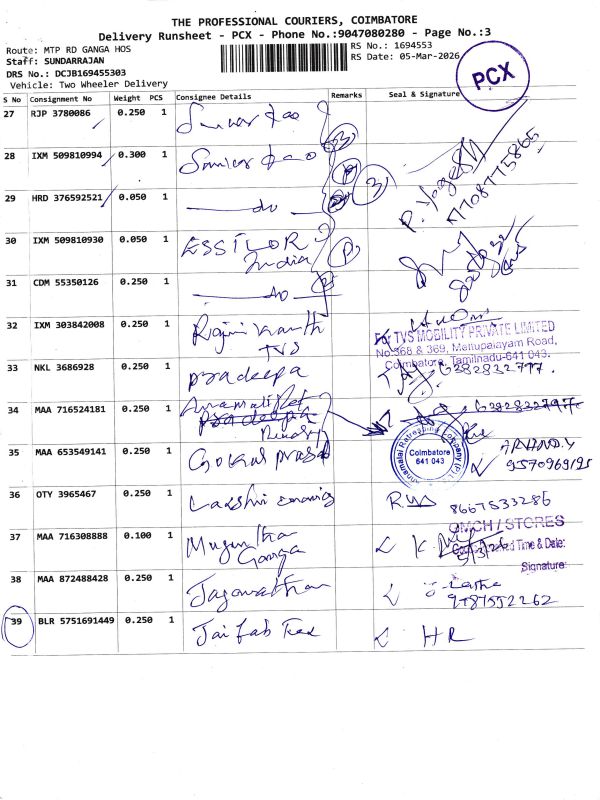 THE PROFESSIONAL COURIERS, COIMBATORE
Delivery Runsheet - PCX - Phone No.:9047080280 - Page No.:3
Route: MTP RD GANGA HOS
RS No.: 1694553
Staff: SUNDARRAJAN
RS Date: 05-Mar-2026
DRS No.: DCJB169455303
Vehicle: Two Wheeler Delivery
PCX
S No Consignment No Weight PCS Consignee Details Remarks Seal & Signature
27 RJP 3780086 0.250 1
28 IXM 509810994 0.300 1
P. Yogesh
29 HRD 376592521 0.050 1 do 3
30 IXM 509810930 0.050 1 ESSILOR India P
31 CDM 55350126 0.250 1 do P
32 IXM 303842008 0.250 1 Rajini Kanth
TVS
For TVS MOBILITY PRIVATE LIMITED
No.368 & 369, Mettupalayam Road,
Coimbatore, Tamilnadu-641 043.
33 NKL 3686928 0.250 1 pradeepa 6282832777.
34 MAA 716524181 0.250 1
Annamalai Retreading Company (P) Ltd
Coimbatore
641 043
35 MAA 653549141 0.250 1 Gokul prasad
ARHIND.Y
36 OTY 3965467 0.250 1 8667533286
37 MAA 716308888 0.100 1 Muguntha
Ganga
GMCH / STORES
Time & Date:
Signature:
38 MAA 872488428 0.250 1 Jaganathan
9787552262
39 BLR 5751691449 0.250 1 Jai fab Tex HR